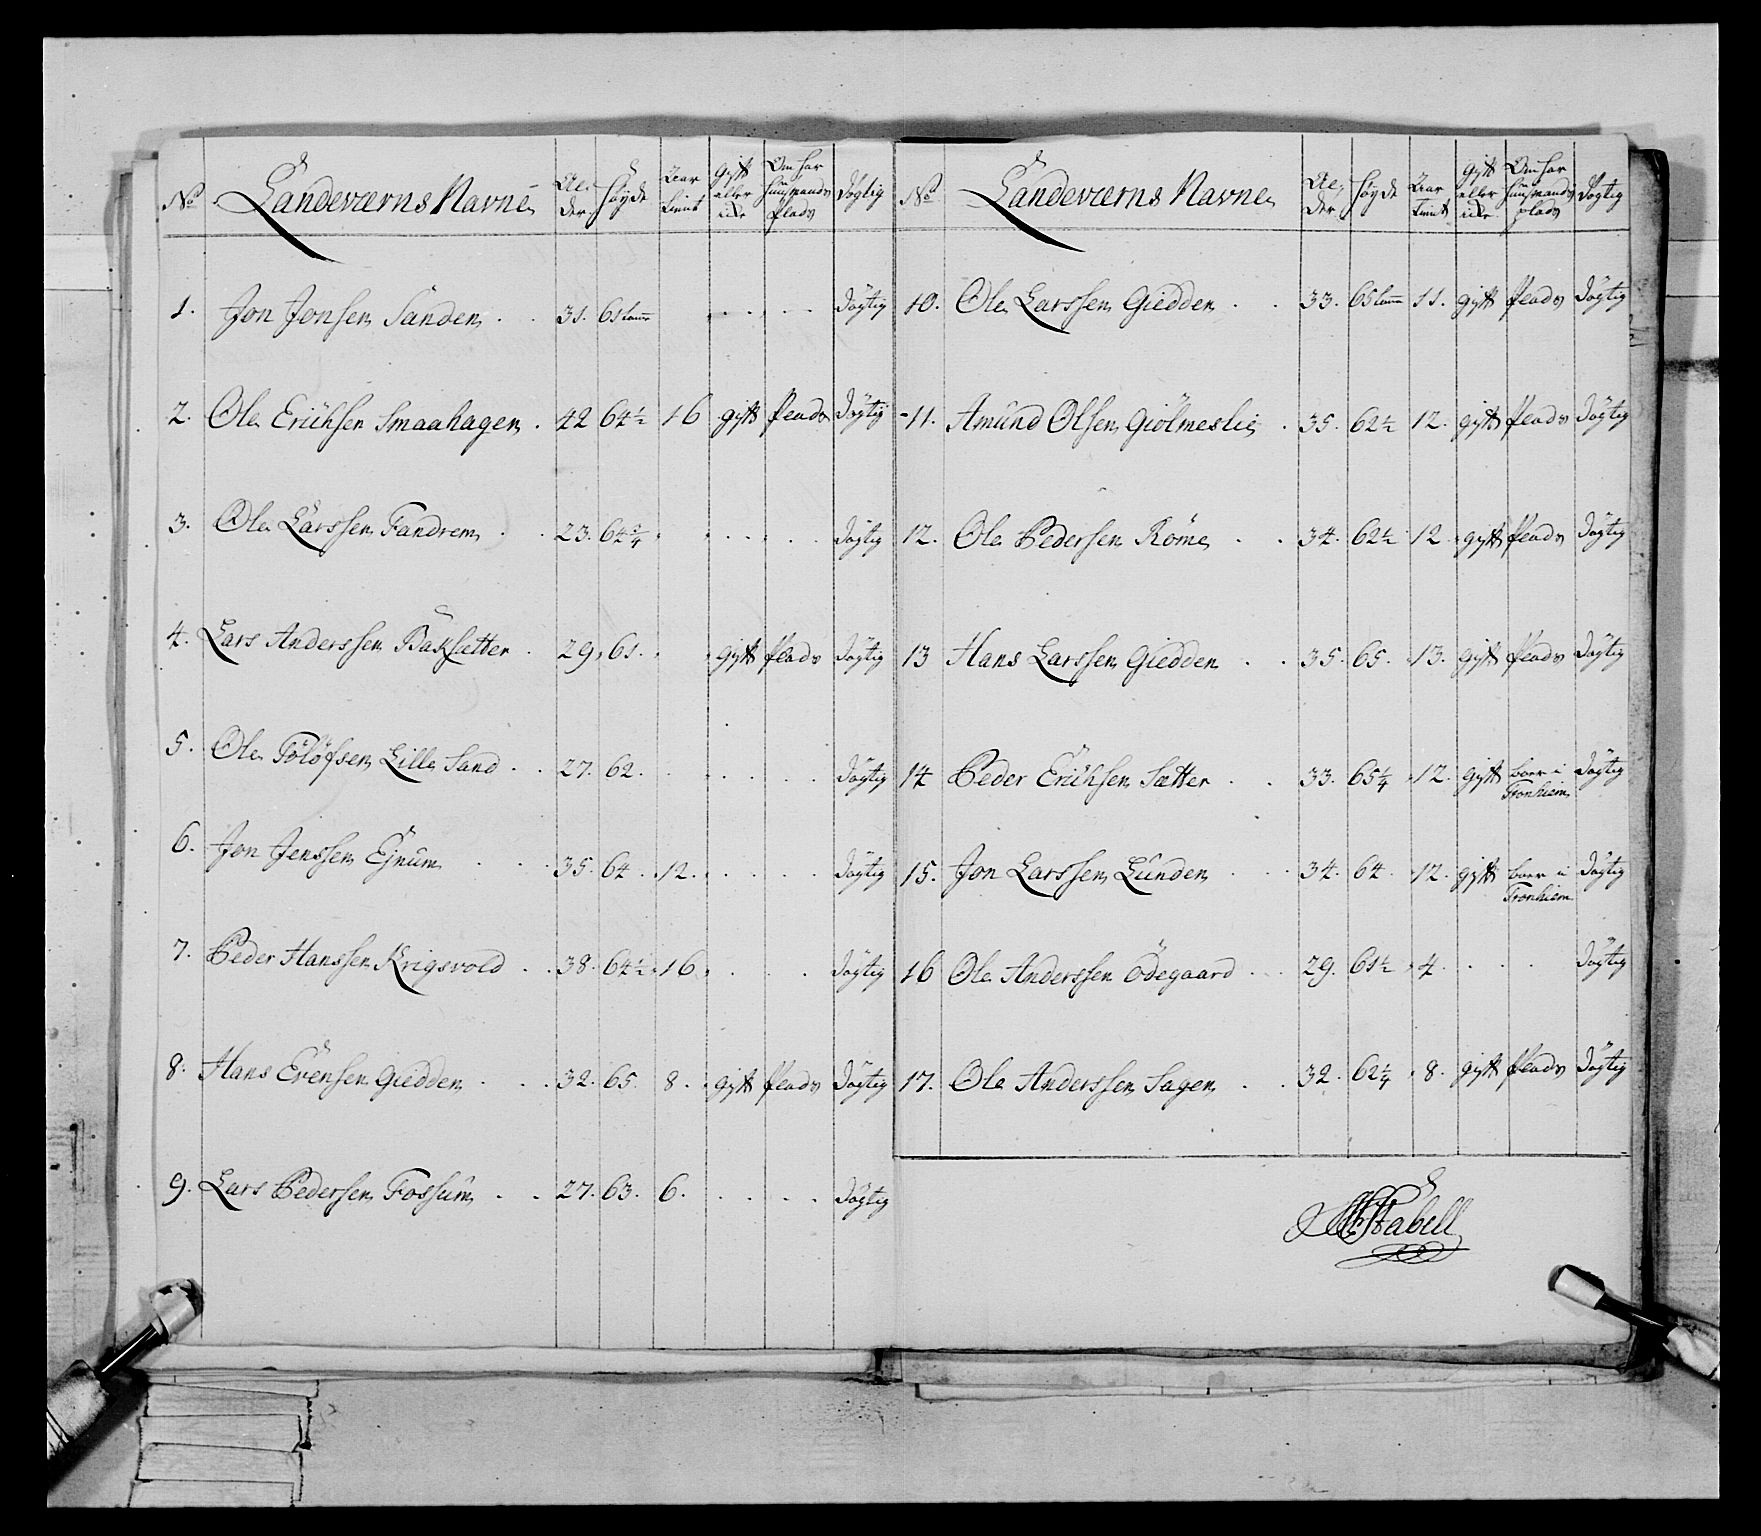 No Landeværns Navne Al- Höyde Aar gift Om har Dögtig
der tient eller huusmands
icke plads
1. Jon Jonsen Sanden 31. 61 Dögtig
2. Ole Erichsen Smaahagen 42 64½ 16 gift Plads Dögtig
3. Ole Larssen Fandrem 23. 64¾ Dögtig
4. Lars Anderssen Baksætter 29. 61. gift Plads Dögtig
5. Ole Lille Sand 27. 62. Dögtig
6. Jon Jenssen Ejnum 35. 64. 12. Dögtig
7. Peder Hanssen Krigsvold 38. 64½ 16. Dögtig
8. Hans Evensen Giedden 32. 65. 8. gift Plads Dögtig
9. Lars Pedersen Fossum 27. 63. 6. Dögtig
No Landeværns Navne Al- Höyde Aar gift Om har Dögtig
der tient eller huusmands
icke plads
10. Ole Larssen Giedden 33. 65 11. gift Plads Dögtig
11. Amund Olsen Giölmeslie 35. 62½ 12. gift Plads Dögtig
12. Ole Pedersen Röme 34. 62½ 12. gift Plads Dögtig
13 Hans Larssen Giedden 35. 65. 13. gift Plads Dögtig
14 Peder Erichsen Sætter 33. 65¼ 12. gift boer i Dögtig
Tronhiem
15. Jon Larssen Lunden 34. 64 12. gift boer i Dögtig
Tronhiem
16 Ole Anderssen Ödegaard 29. 61½ 4. Dögtig
17. Ole Anderssen Sagen 32. 62¼ 8. gift Plads Dögtig
Stabell